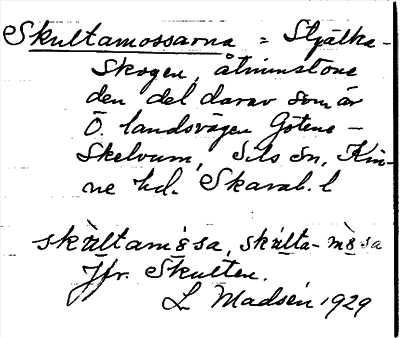 Skultamossarna = Stjälka-
Skogen, åtminstone
den del darav som är
Ö. landsvägen Götene –
Skelvum, Sils Sn, Kin-
ne hd. Skarab. l
skultamåsa, skulta-måsa
Jfr. Skulten.
L Madsén 1929